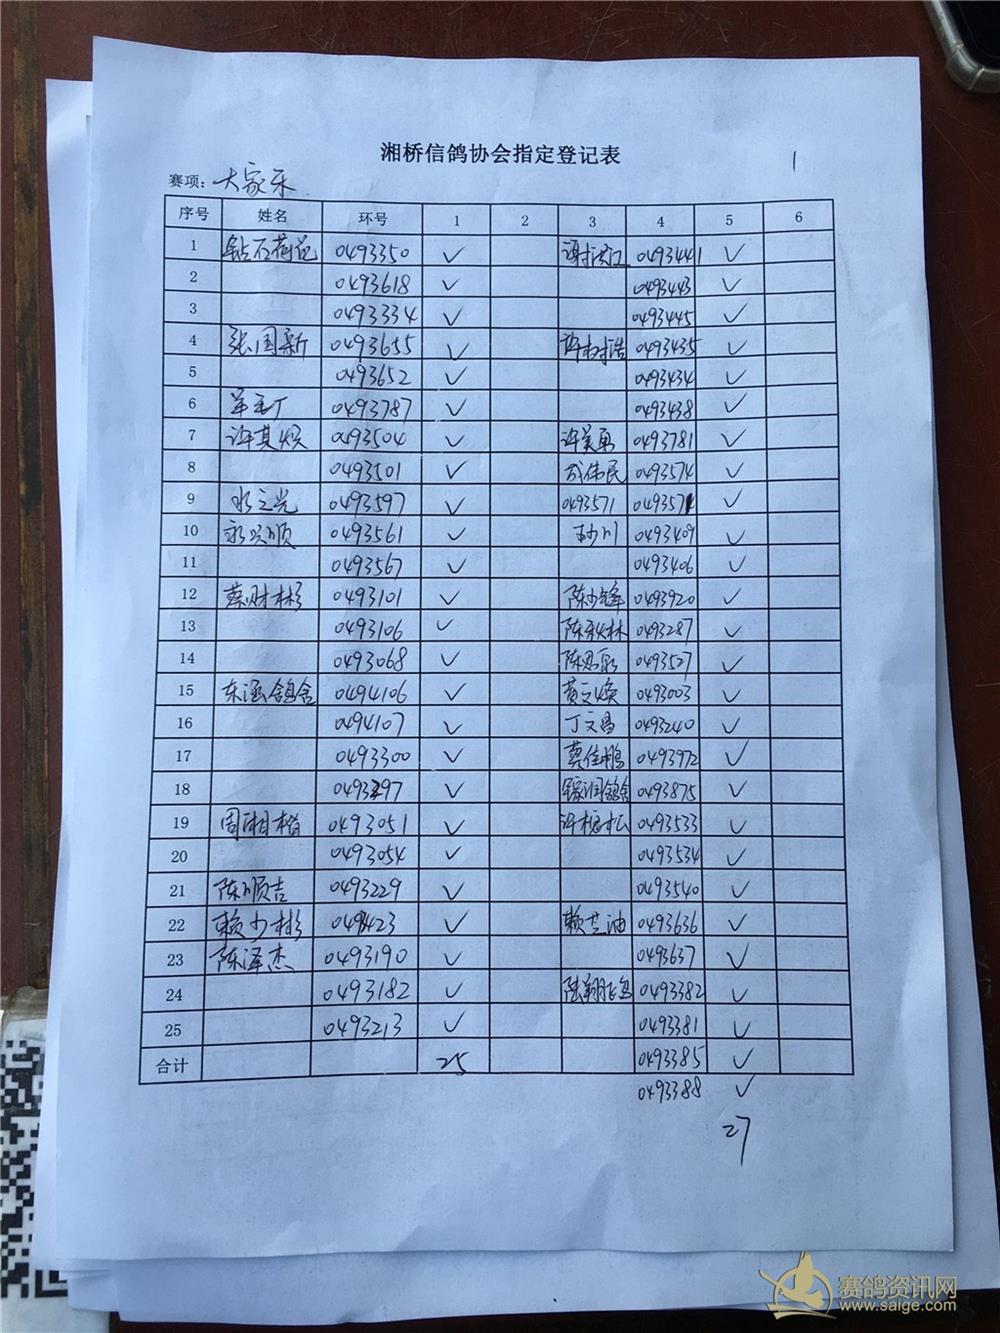 湘桥信鸽协会指定登记表 1
赛项: 大家乐
序号 姓名 环号 1 2 3 4 5 6
1 钻石荷花 0493350 ✓ 谢洪江 0493441 ✓
2 0493618 ✓ 0493443 ✓
3 0493334 ✓ 0493445 ✓
4 张国新 0493655 ✓ 许树浩 0493435 ✓
5 0493652 ✓ 0493434 ✓
6 0493787 ✓ 0493438 ✓
7 许其焕 0493504 ✓ 许美勇 0493781 ✓
8 0493501 ✓ 伟民 0493574 ✓
9 水之光 0493597 ✓ 0493571 0493571 ✓
10 永兴顺 0493561 ✓ 0493409 ✓
11 0493567 ✓ 0493406 ✓
12 蔡财彬 0493101 ✓ 陈少锋 0493920 ✓
13 0493106 ✓ 陈秋林 0493287 ✓
14 0493068 ✓ 陈思 0493527 ✓
15 东涵鸽舍 0494106 ✓ 黄文焕 0493003 ✓
16 0494107 ✓ 丁文昌 0493240 ✓
17 0493300 ✓ 蔡佳鹏 0493972 ✓
18 0493297 ✓ 鸽舍 0493875 ✓
19 周湘楷 0493051 ✓ 许松 0493533 ✓
20 0493054 ✓ 0493534 ✓
21 陈顺吉 0493229 ✓ 0493540 ✓
22 赖少彬 ✓ 赖芝油 0493636 ✓
23 陈泽杰 0493190 ✓ 0493637 ✓
24 0493182 ✓ 陆翔 0493382 ✓
25 0493213 ✓ 0493381 ✓
合计 25 0493385 ✓
0493388 ✓
27
赛鸽资讯网
www.saige.com